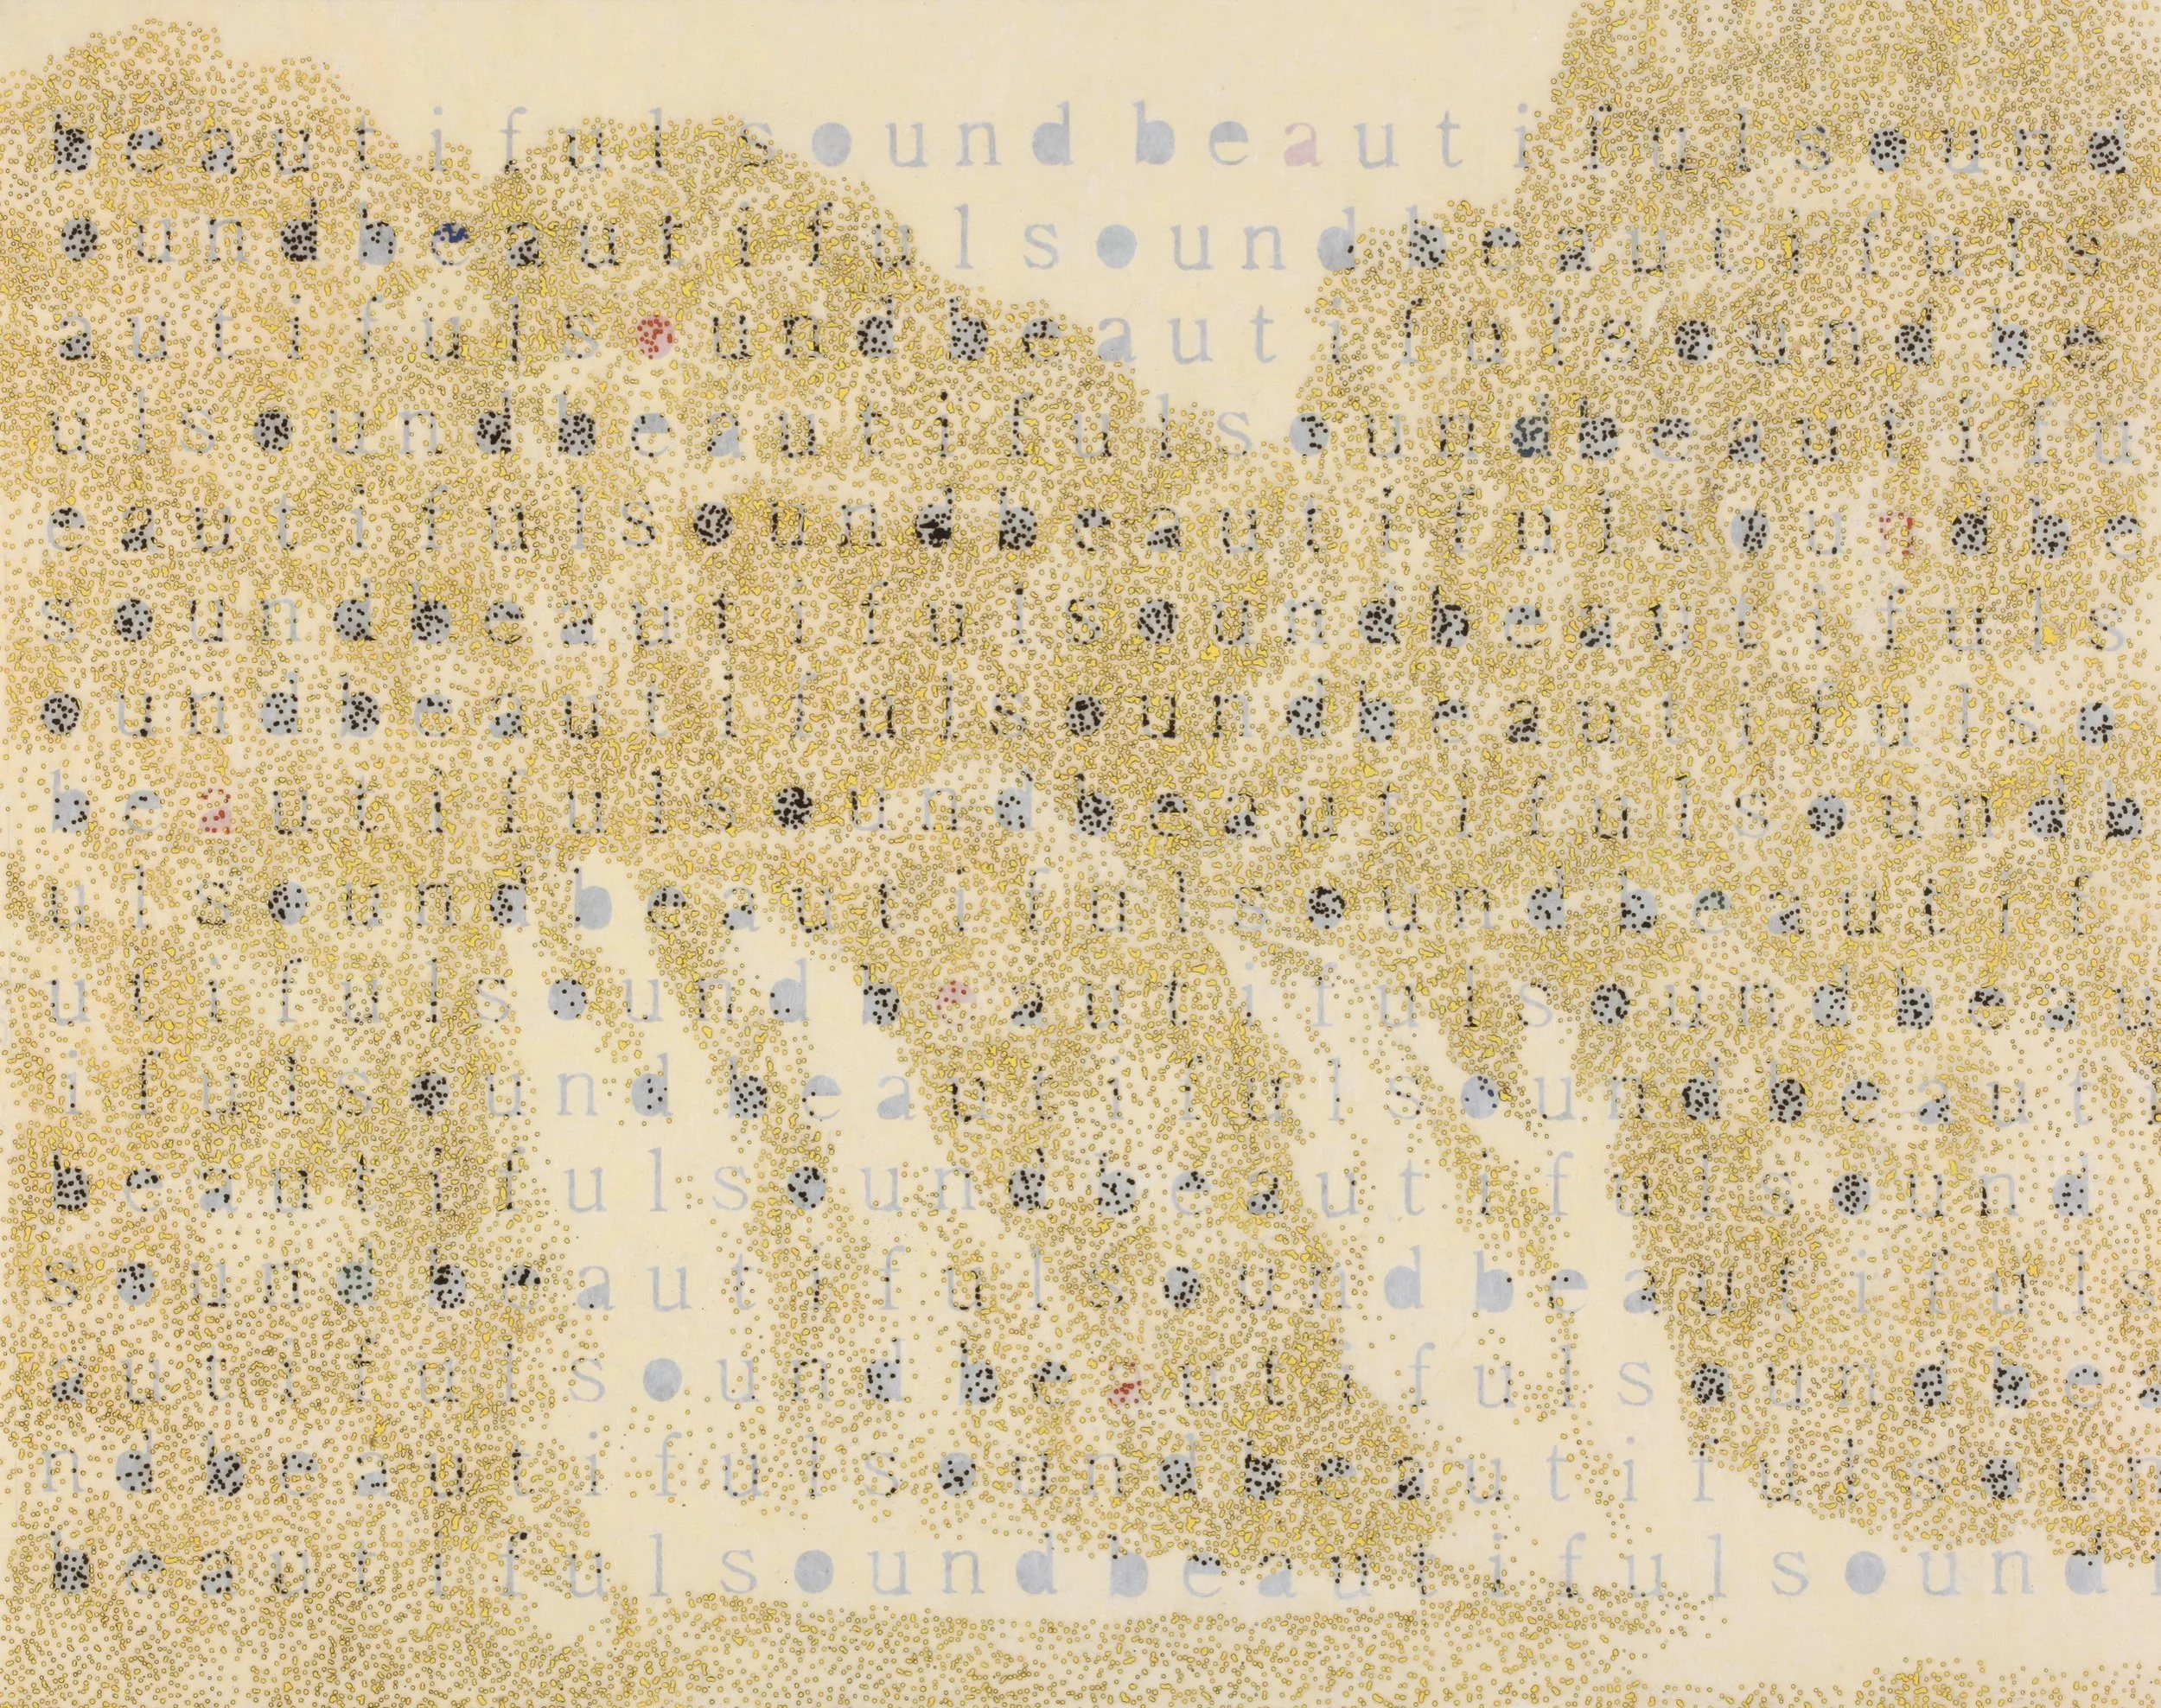 beautifulsoundbeautifulsound
oundbeautifulsoundbeautifuls
autifulsoundbeautifulsoundbe
ulsoundbeautifulsoundbeautifu
eautifulsoundbeautifulsoundbe
soundbeautifulsoundbeautifuls
oundbeautifulsoundbeautifulso
beautifulsoundbeautifulsoundb
ulsoundbeautifulsoundbeautif
utifulsoundbeautifulsoundbeau
ifulsoundbeautifulsoundbeauti
beautifulsoundbeautifulsound
soundbeautifulsoundbeautifuls
autifulsoundbeautifulsoundbea
ndbeautifulsoundbeautifulsoun
beautifulsoundbeautifulsound